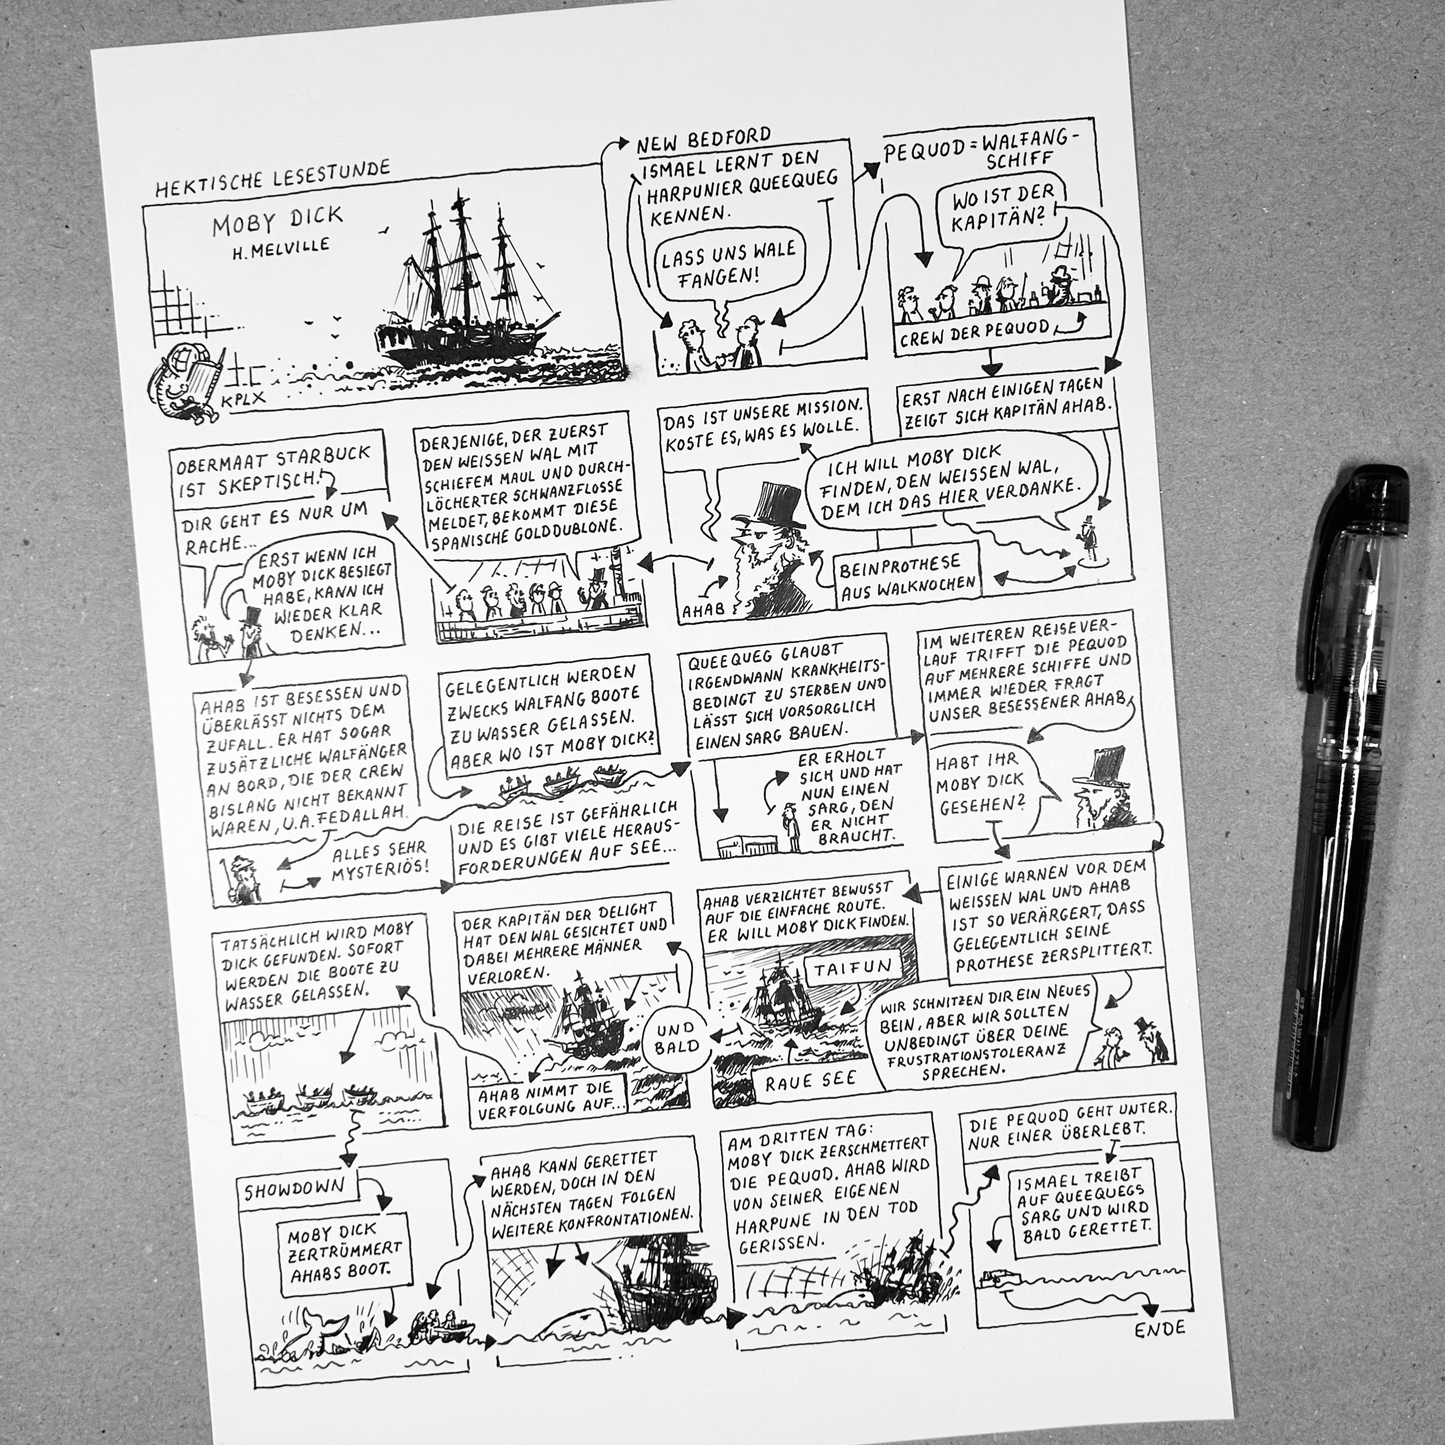 HEKTISCHE LESESTUNDE
MOBY DICK
H. MELVILLE
KPLX
NEW BEDFORD
ISMAEL LERNT DEN
HARPUNIER QUEEQUEG
KENNEN.
LASS UNS WALE
FANGEN!
PEQUOD = WALFANG-
SCHIFF
WO IST DER
KAPITÄN?
CREW DER PEQUOD
ERST NACH EINIGEN TAGEN
ZEIGT SICH KAPITÄN AHAB.
ICH WILL MOBY DICK
FINDEN, DEN WEISSEN WAL,
DEM ICH DAS HIER VERDANKE.
BEINPROTHESE
AUS WALKNOCHEN
DAS IST UNSERE MISSION.
KOSTE ES, WAS ES WOLLE.
AHAB
DERJENIGE, DER ZUERST
DEN WEISSEN WAL MIT
SCHIEFEM MAUL UND DURCH-
LÖCHERTER SCHWANZFLOSSE
MELDET, BEKOMMT DIESE
SPANISCHE GOLDDUBLONE.
OBERMAAT STARBUCK
IST SKEPTISCH.
DIR GEHT ES NUR UM
RACHE...
ERST WENN ICH
MOBY DICK BESIEGT
HABE, KANN ICH
WIEDER KLAR
DENKEN...
AHAB IST BESESSEN UND
ÜBERLÄSST NICHTS DEM
ZUFALL. ER HAT SOGAR
ZUSÄTZLICHE WALFÄNGER
AN BORD, DIE DER CREW
BISLANG NICHT BEKANNT
WAREN, U.A. FEDALLAH.
ALLES SEHR
MYSTERIÖS!
GELEGENTLICH WERDEN
ZWECKS WALFANG BOOTE
ZU WASSER GELASSEN.
ABER WO IST MOBY DICK?
DIE REISE IST GEFÄHRLICH
UND ES GIBT VIELE HERAUS-
FORDERUNGEN AUF SEE...
QUEEQUEG GLAUBT
IRGENDWANN KRANKHEITS-
BEDINGT ZU STERBEN UND
LÄSST SICH VORSORGLICH
EINEN SARG BAUEN.
ER ERHOLT
SICH UND HAT
NUN EINEN
SARG, DEN
ER NICHT
BRAUCHT.
IM WEITEREN REISEVER-
LAUF TRIFFT DIE PEQUOD
AUF MEHRERE SCHIFFE UND
IMMER WIEDER FRAGT
UNSER BESESSENER AHAB,
HABT IHR
MOBY DICK
GESEHEN?
EINIGE WARNEN VOR DEM
WEISSEN WAL UND AHAB
IST SO VERÄRGERT, DASS
GELEGENTLICH SEINE
PROTHESE ZERSPLITTERT.
WIR SCHNITZEN DIR EIN NEUES
BEIN, ABER WIR SOLLTEN
UNBEDINGT ÜBER DEINE
FRUSTRATIONSTOLERANZ
SPRECHEN.
AHAB VERZICHTET BEWUSST
AUF DIE EINFACHE ROUTE.
ER WILL MOBY DICK FINDEN.
TAIFUN
RAUE SEE
UND
BALD
DER KAPITÄN DER DELIGHT
HAT DEN WAL GESICHTET UND
DABEI MEHRERE MÄNNER
VERLOREN.
AHAB NIMMT DIE
VERFOLGUNG AUF...
TATSÄCHLICH WIRD MOBY
DICK GEFUNDEN. SOFORT
WERDEN DIE BOOTE ZU
WASSER GELASSEN.
SHOWDOWN
MOBY DICK
ZERTRÜMMERT
AHABS BOOT.
AHAB KANN GERETTET
WERDEN, DOCH IN DEN
NÄCHSTEN TAGEN FOLGEN
WEITERE KONFRONTATIONEN.
AM DRITTEN TAG:
MOBY DICK ZERSCHMETTERT
DIE PEQUOD. AHAB WIRD
VON SEINER EIGENEN
HARPUNE IN DEN TOD
GERISSEN.
DIE PEQUOD GEHT UNTER.
NUR EINER ÜBERLEBT.
ISMAEL TREIBT
AUF QUEEQUEGS
SARG UND WIRD
BALD GERETTET.
ENDE